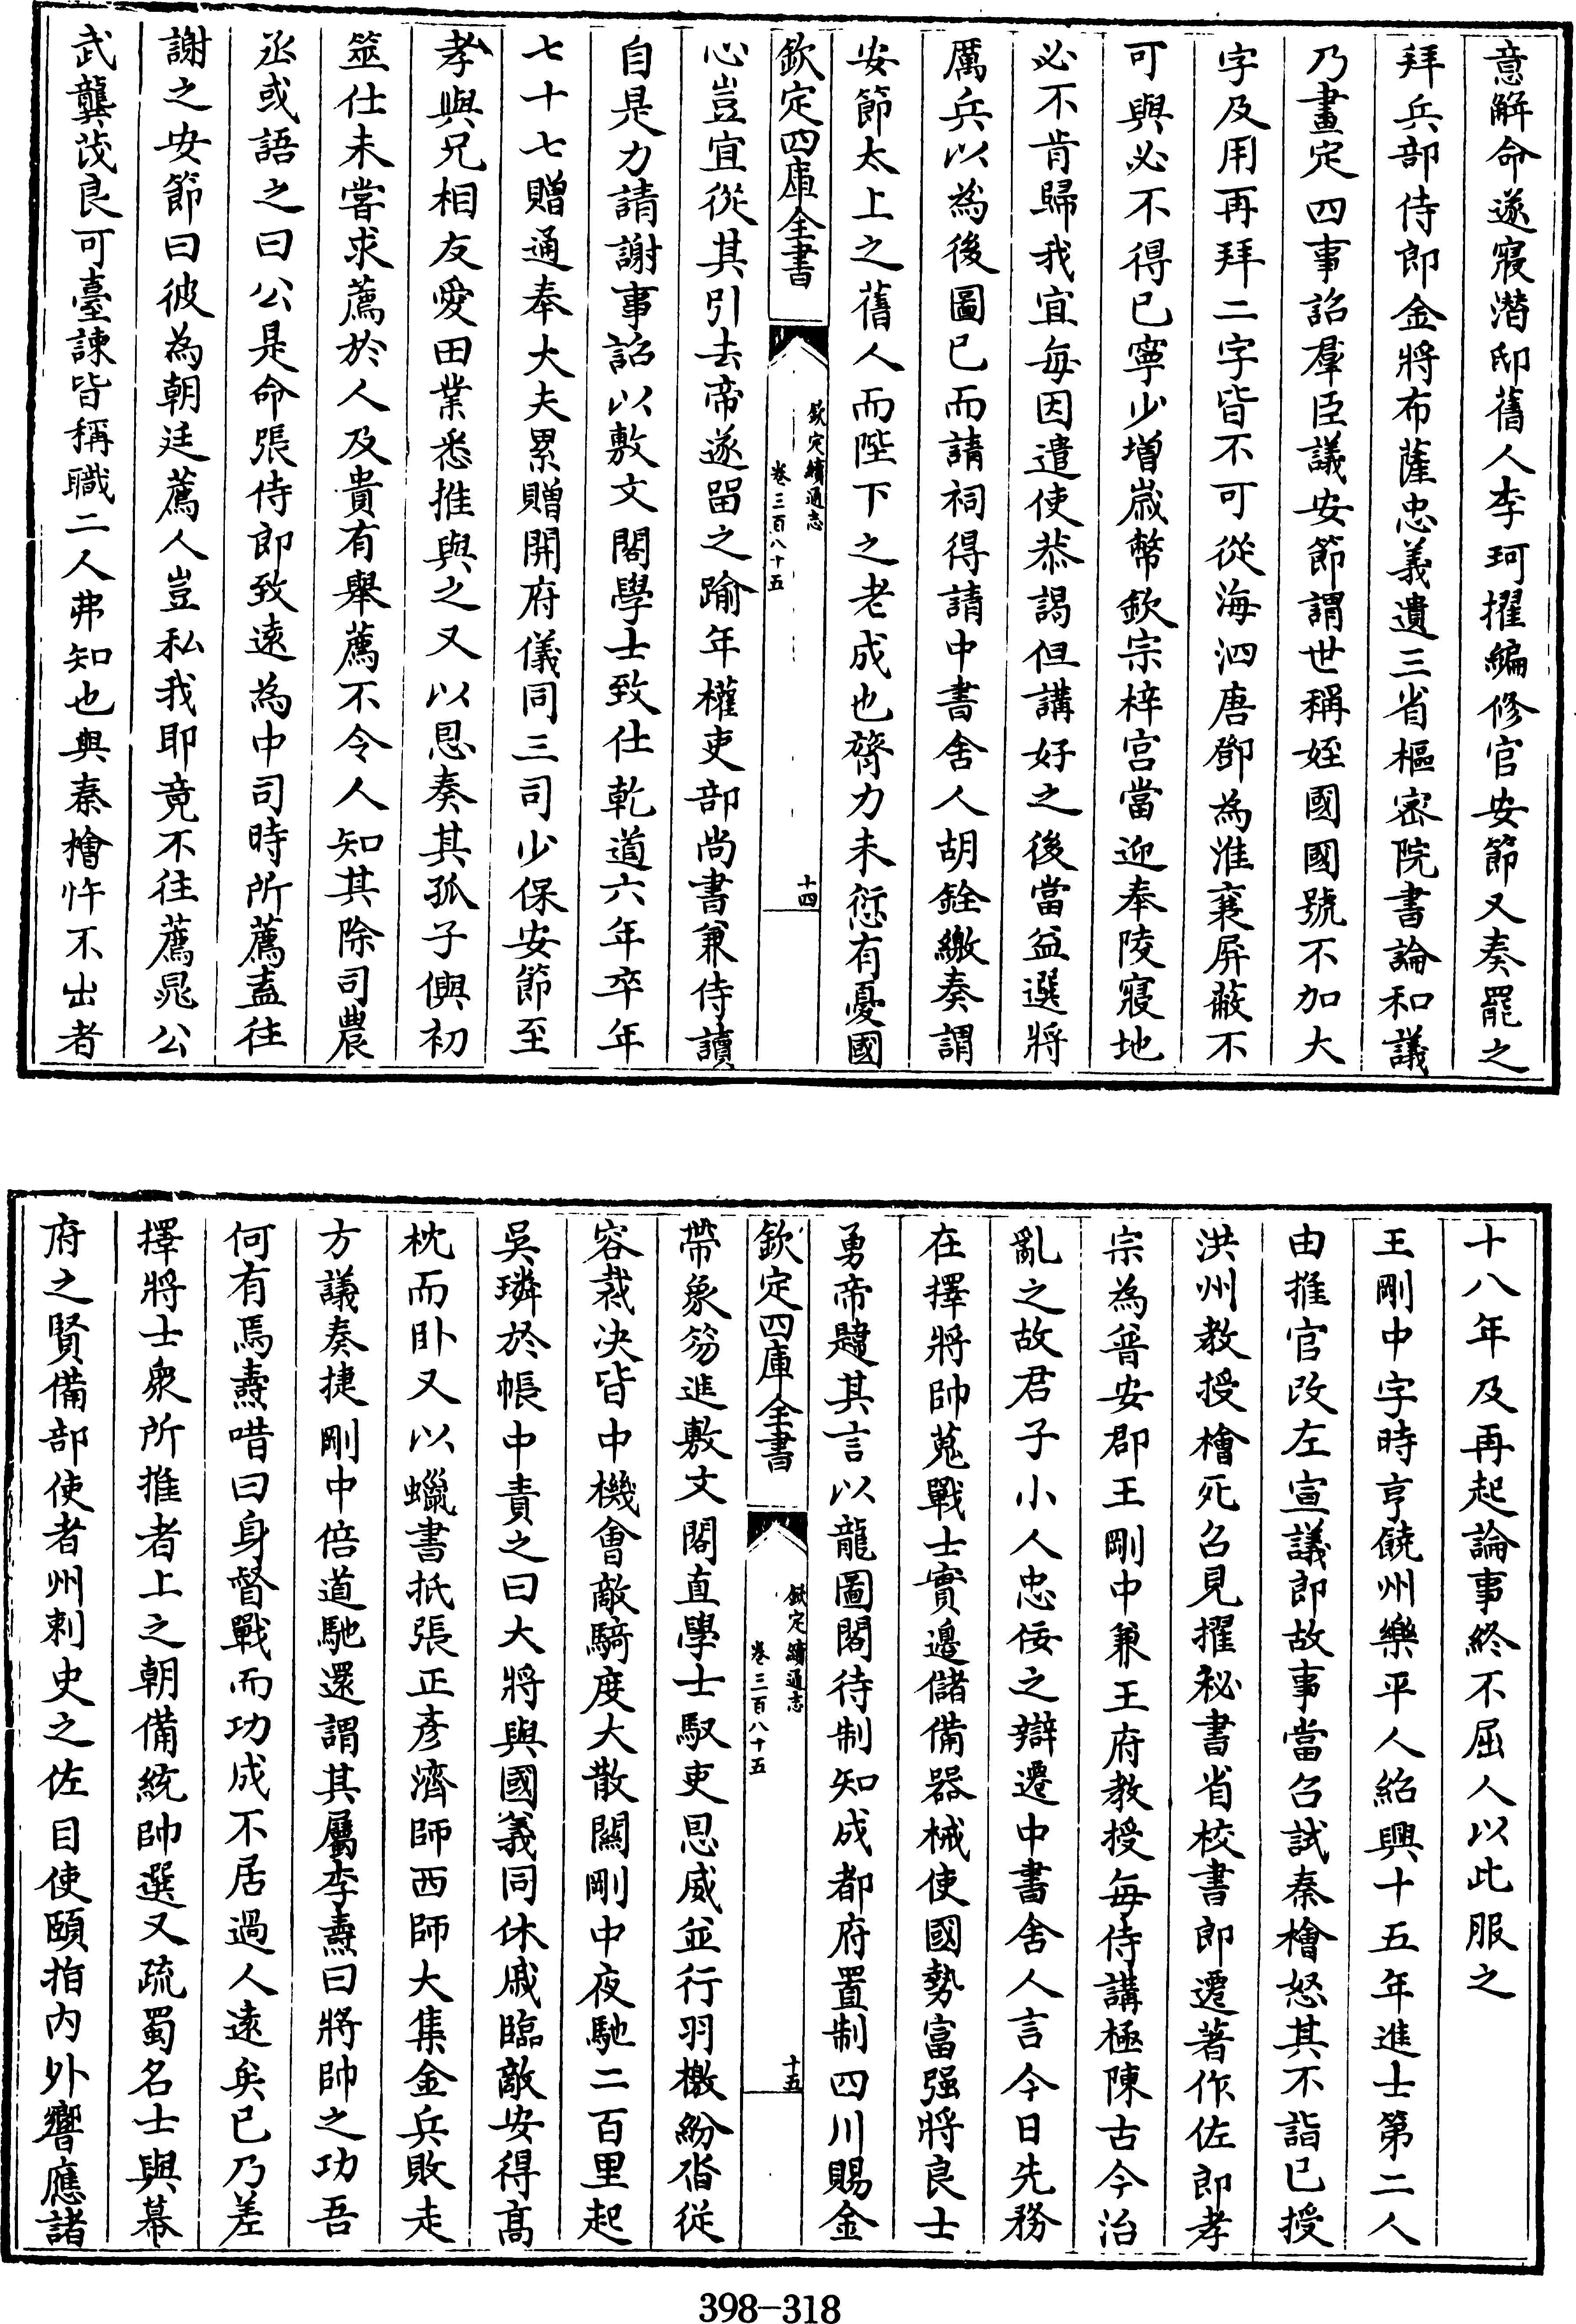 意解命遂寢潛邸舊人李珂擢編修官安節又奏罷之
拜兵部侍郎金將布薩忠義遺三省樞密院書論和議
乃畫定四事詔羣臣議安節謂世稱姪國國號不加大
字及用再拜二字皆不可從海泗唐鄧為淮襄屏蔽不
可與必不得已寧少增嵗幣欽宗梓宮當迎奉陵寢地
必不肯歸我宜每因遣使恭謁但講好之後當益選將
厲兵以為後圖已而請祠得請中書舍人胡銓繳奏謂
安節太上之舊人而陛下之老成也膂力未愆有憂國
欽定四庫全書
欽定續通志
卷三百八十五
十四
心豈宜從其引去帝遂留之踰年權吏部尚書兼侍讀
自是力請謝事詔以敷文閣學士致仕乾道六年卒年
七十七贈通奉大夫累贈開府儀同三司少保安節至
孝與兄相友愛田業悉推與之又以恩奏其孤子㒜初
筮仕未嘗求薦於人及貴有舉薦不令人知其除司農
丞或語之曰公是命張侍郎致遠為中司時所薦盍往
謝之安節曰彼為朝廷薦人豈私我耶竟不往薦晁公
武龔茂良可臺諫皆稱職二人弗知也與秦檜忤不出者
十八年及再起論事終不屈人以此服之
王剛中字時亨饒州樂平人紹興十五年進士第二人
由推官改左宣議郎故事當召試秦檜怒其不詣已授
洪州教授檜死召見擢秘書省校書郎遷著作佐郎孝
宗為普安郡王剛中兼王府教授每侍講極陳古今治
亂之故君子小人忠佞之辯遷中書舍人言今日先務
在擇將帥蒐戰士實邊儲備器械使國勢富强將良士
勇帝韙其言以龍圖閣待制知成都府置制四川賜金
欽定四庫全書
欽定續通志
卷三百八十五
十五
帶象笏進敷文閣直學士馭吏恩威並行羽檄紛沓從
容裁決皆中機會敵騎度大散關剛中夜馳二百里起
吳璘於帳中責之曰大將與國義同休戚臨敵安得髙
枕而卧又以蠟書抵張正彥濟師西師大集金兵敗走
方議奏捷剛中倍道馳還謂其屬李燾曰將帥之功吾
何有焉燾唶曰身督戰而功成不居過人遠矣已乃差
擇將士衆所推者上之朝備統帥選又疏蜀名士與幕
府之賢備部使者州刺史之佐目使頤指內外響應諸
398-318